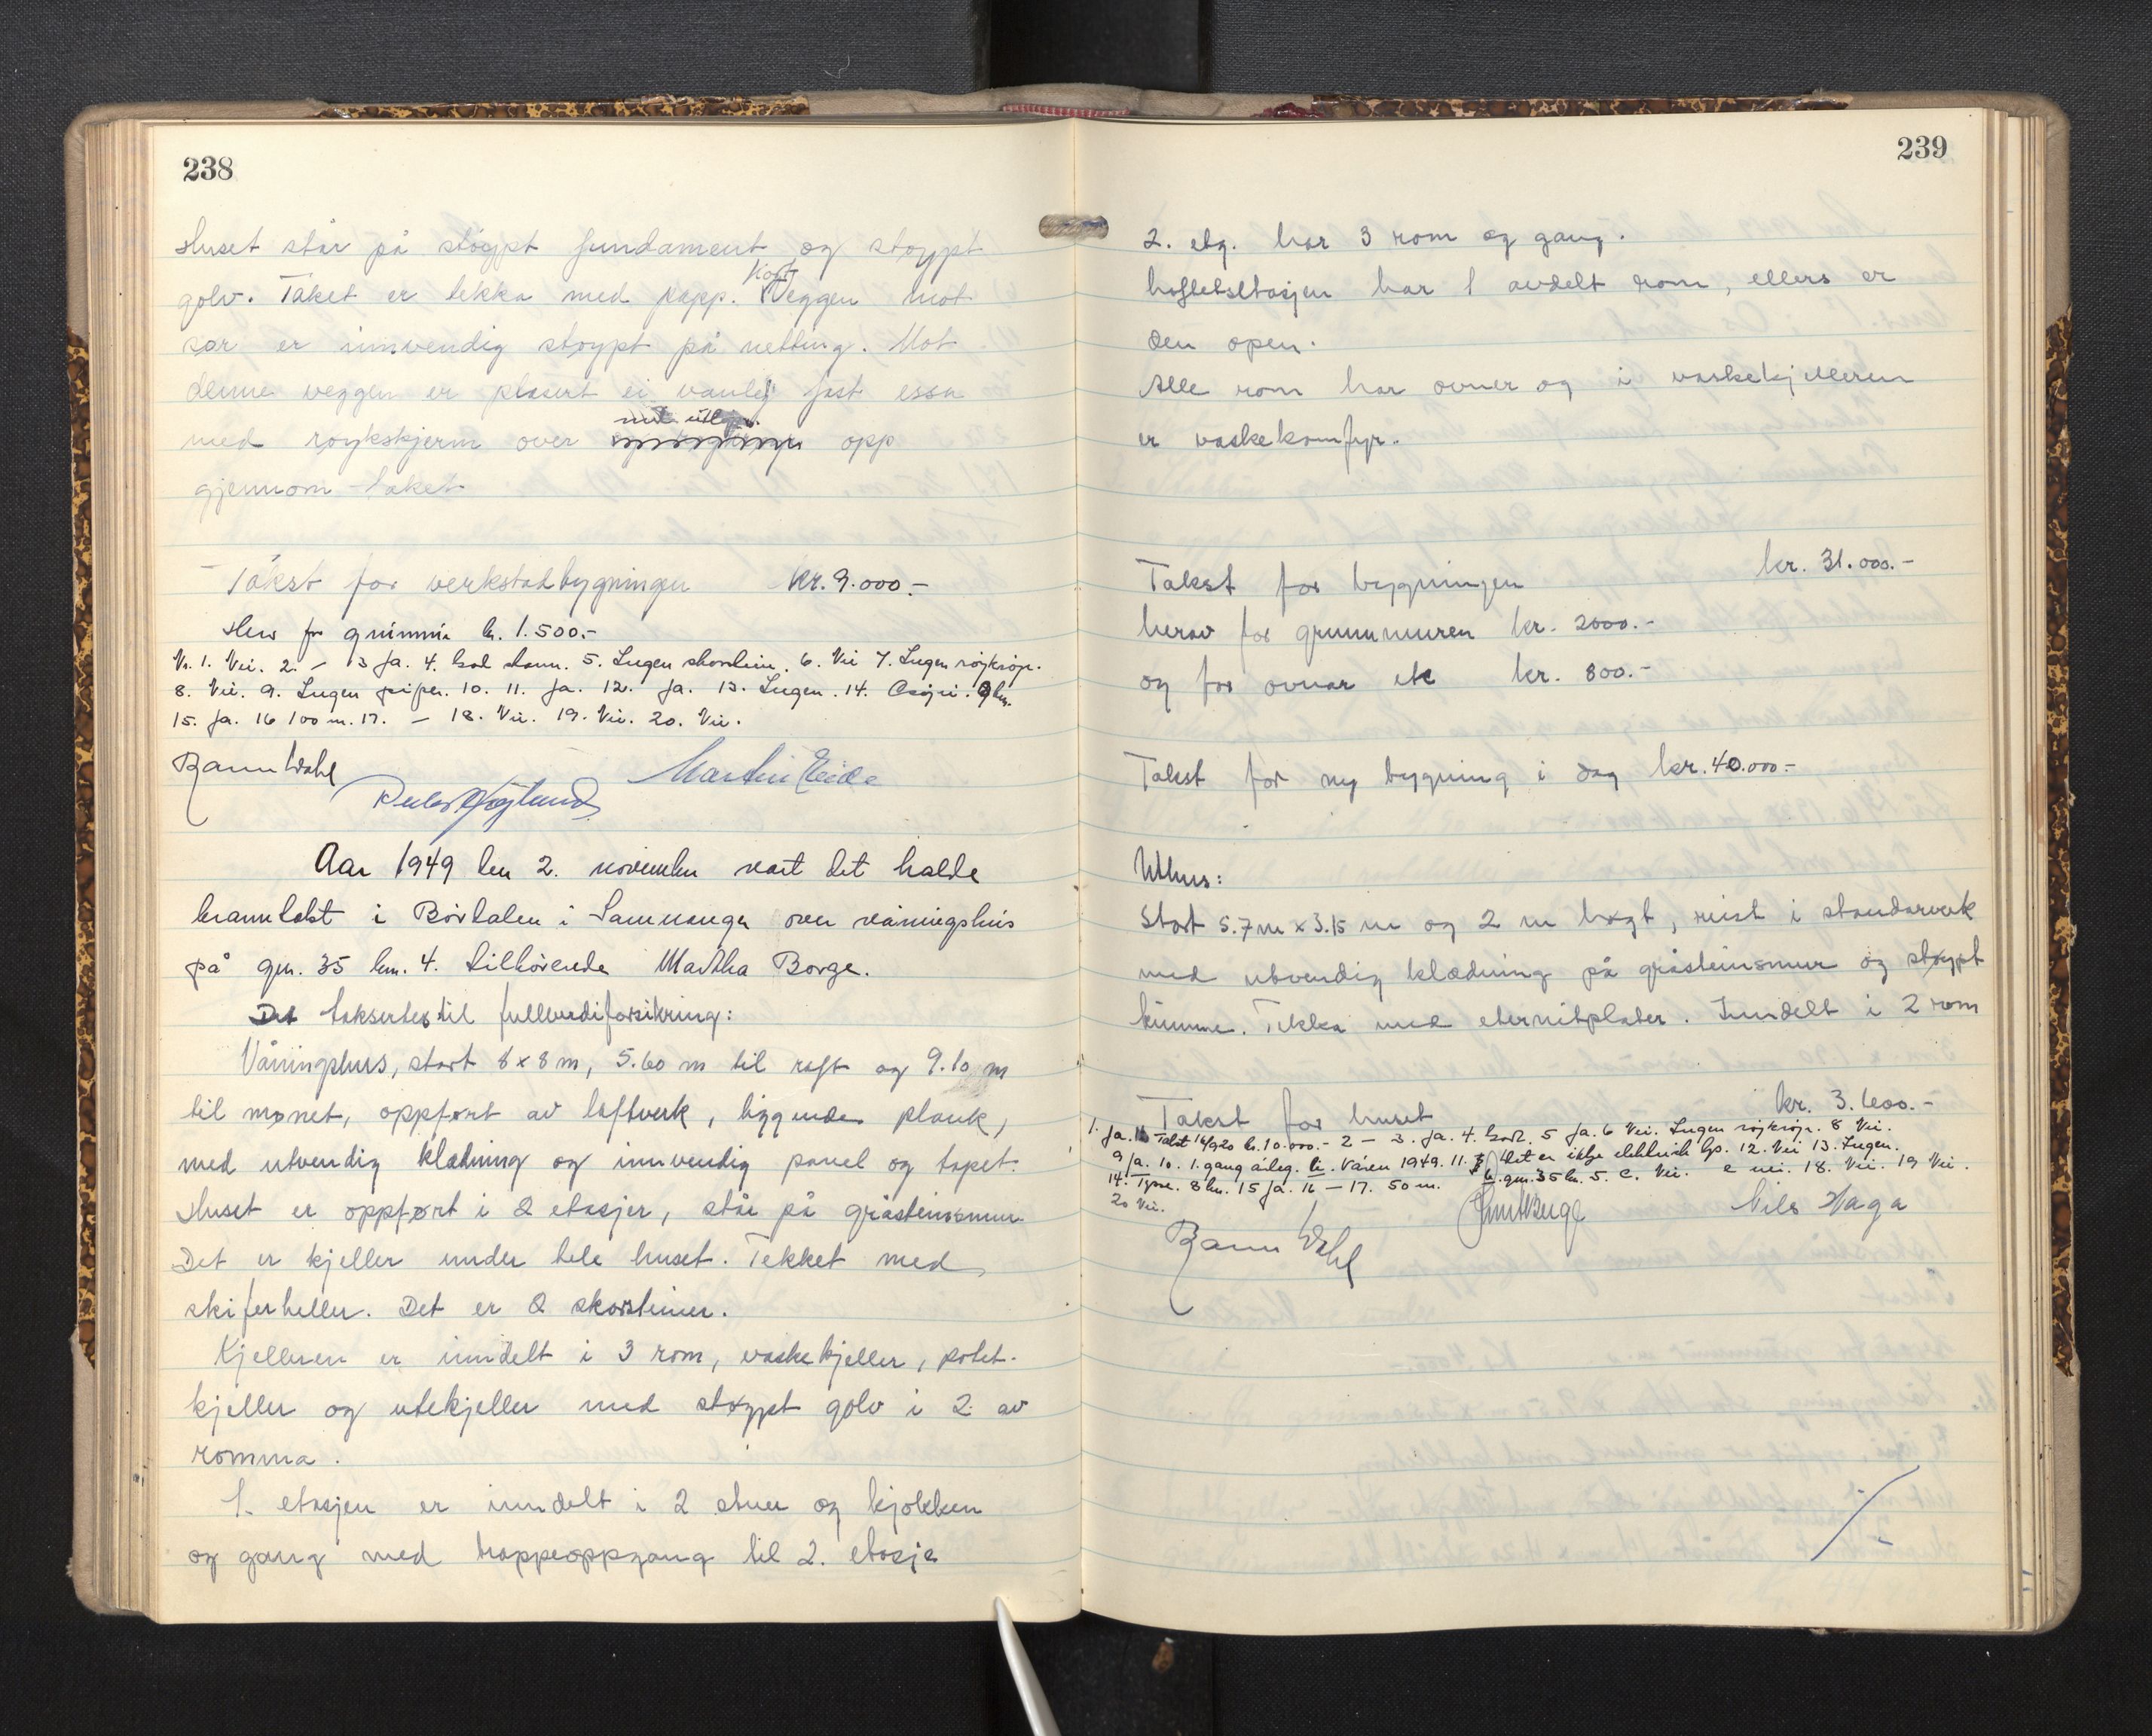 238
Huset står på støypt fundament og støypt
golv. Taket er tekka med papp. Kort Veggen mot
sør er innvendig støypt på netting. Mot
denne veggen er plasert ei vanleg fast essa
med røykskjerm over med utløp opp
gjennom taket
Takst for verkstadbygningen kr. 9.000.-
Herav for grunnmur kr. 1.500.-
Nr. 1. Nei. 2. - 3 Ja. 4. God stann. 5. Ingen skorstein. 6. Nei 7. Ingen røykrøyr.
8. Nei. 9. Ingen piper. 10. 11. Ja. 12. Ja. 13. Ingen. 14. Osøyri. 9 km.
15. Ja. 16 100 m. 17. - 18. Nei. 19. Nei. 20. Nei.
Martin Eide
Aar 1949 den 2. november vart det halde
branntakst i Bördalen i Samnanger over våningshus
på gnr. 35 bnr. 4. tilhörende Martha Borge.
Det taksertes til fullverdiforsikring:
Våningshus, stort 8 x 8 m, 5.60 m til raft og 9.10 m
til mønet, oppført av laftverk, liggende plank,
med utvendig klædning og innvendig panel og tapet.
Huset er oppført i 2 etasjer, står på gråsteinsmur.
Det er kjeller under hele huset. Tekket med
skiferheller. Det er 2 skorsteiner.
Kjelleren er inndelt i 3 rom, vaskekjeller, potet-
kjeller og utekjeller med støypt golv i 2 av
romma.
1. etasjen er inndelt i 2 stuer og kjøkken
og gang med trappeoppgang til 2. etasje
239
2. etg. har 3 rom og gang.
loftetsetasjen har 1 avdelt rom, ellers er
den open.
Alle rom har ovner og i vaskekjelleren
er vaskekomfyr.
Takst for bygningen kr. 31.000.-
herav for grunnmuren kr. 2000.-
og for ovnar etc kr. 800.-
Takst for ny bygning i dag kr. 40.000.-
Uthus:
Stort 5.7 m x 3.15 m og 2 m høgt, reist i standarverk
med utvendig klædning på gråsteinsmur og støypt
kumme. Tekka med eternitplater. Inndelt i 2 rom
Takst for huset kr. 3.600.-
1. Ja. Takst 16/9 20 kr. 10.000.- 2 - 3. Ja. 4. God. 5 Ja. 6 Nei. Ingen røykrøyr. 8 Nei.
9 Ja. 10. 1. gang årleg. Våren 1949. 11. Det er ikkje elektrisk lys. 12. Nei 13. Ingen.
14. Tysse. 8 km. 15 Ja. 16 - 17. 50 m. gnr. 35 bnr. 5. c. Nei. e nei. 18. Nei. 19 Nei.
20 Nei.
Nils Haga